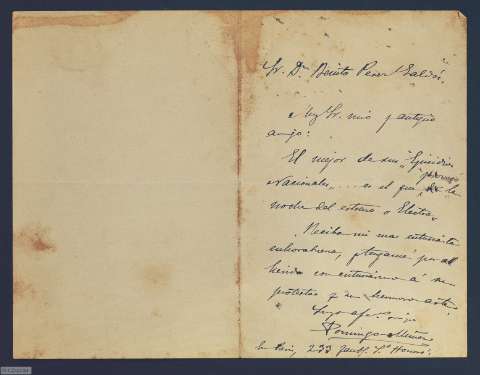 Sr. Dn. Benito Perez Galdós.
Muy Sr. mio y antiguo
amigo:
El mejor de sus "Episodios
Nacionales" ... es el que
la
noche del estreno
Electra.
Reciba mi mas entusiasta
enhorabuena, y tengame por ad
herido con entusiasmo á su
protesta
hermoso
Suyo afmo amigo
Domingo
en Paris, 233 Faubg. St Honoré.